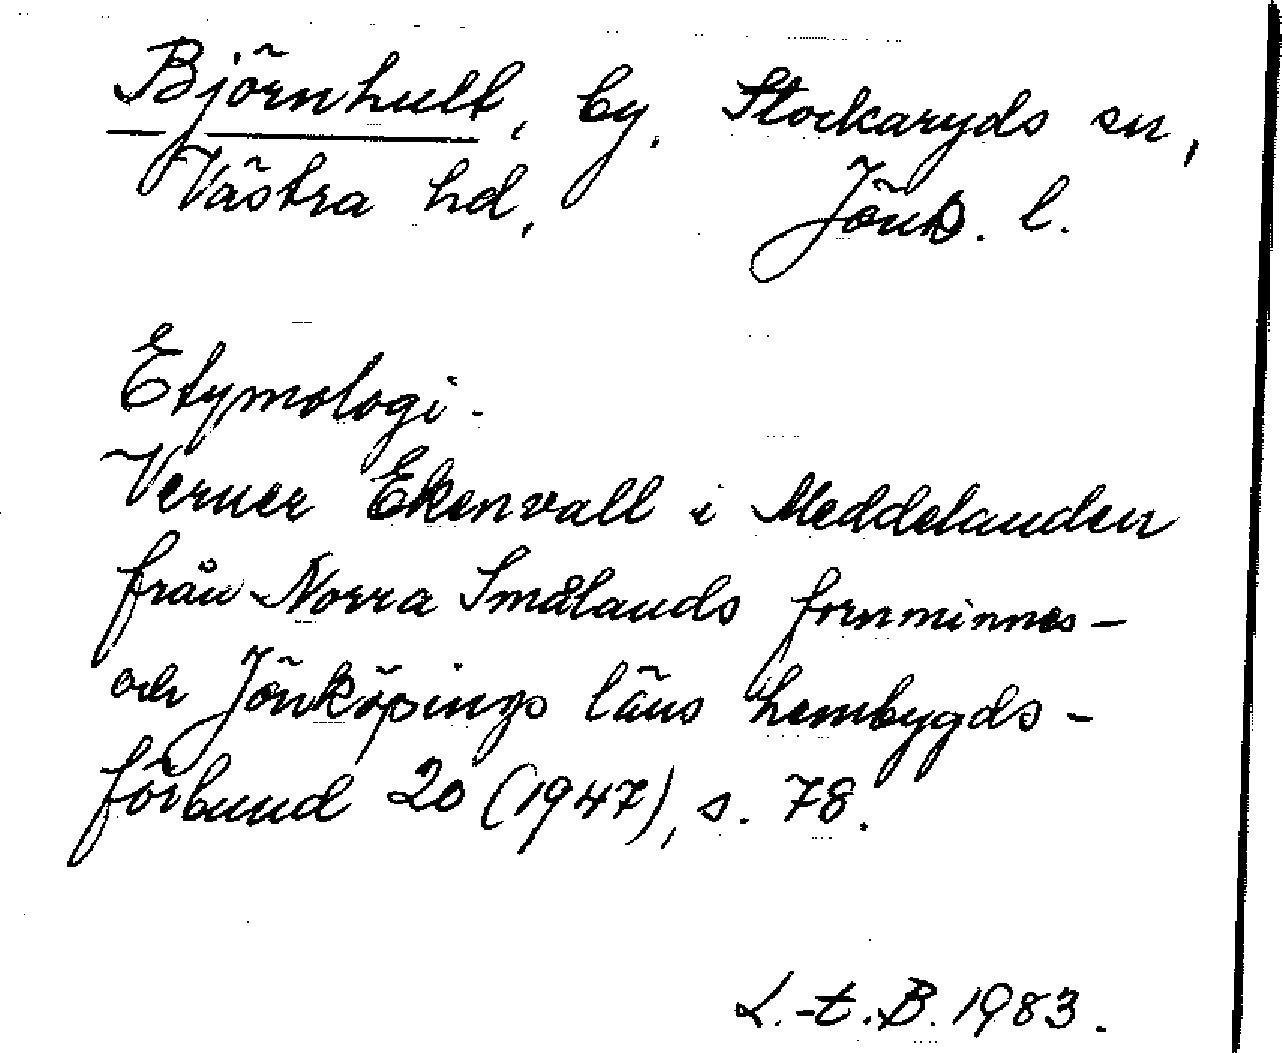 Björnhult, by. Stockaryds sn,
Västra hd, Jönk. l.
Etymologi.
Verner Ekenvall i Meddelanden
från Norra Smålands fornminnes-
och Jönköpings läns hembygds-
förbund 20 (1947), s. 78.
L.-t. B. 1983.